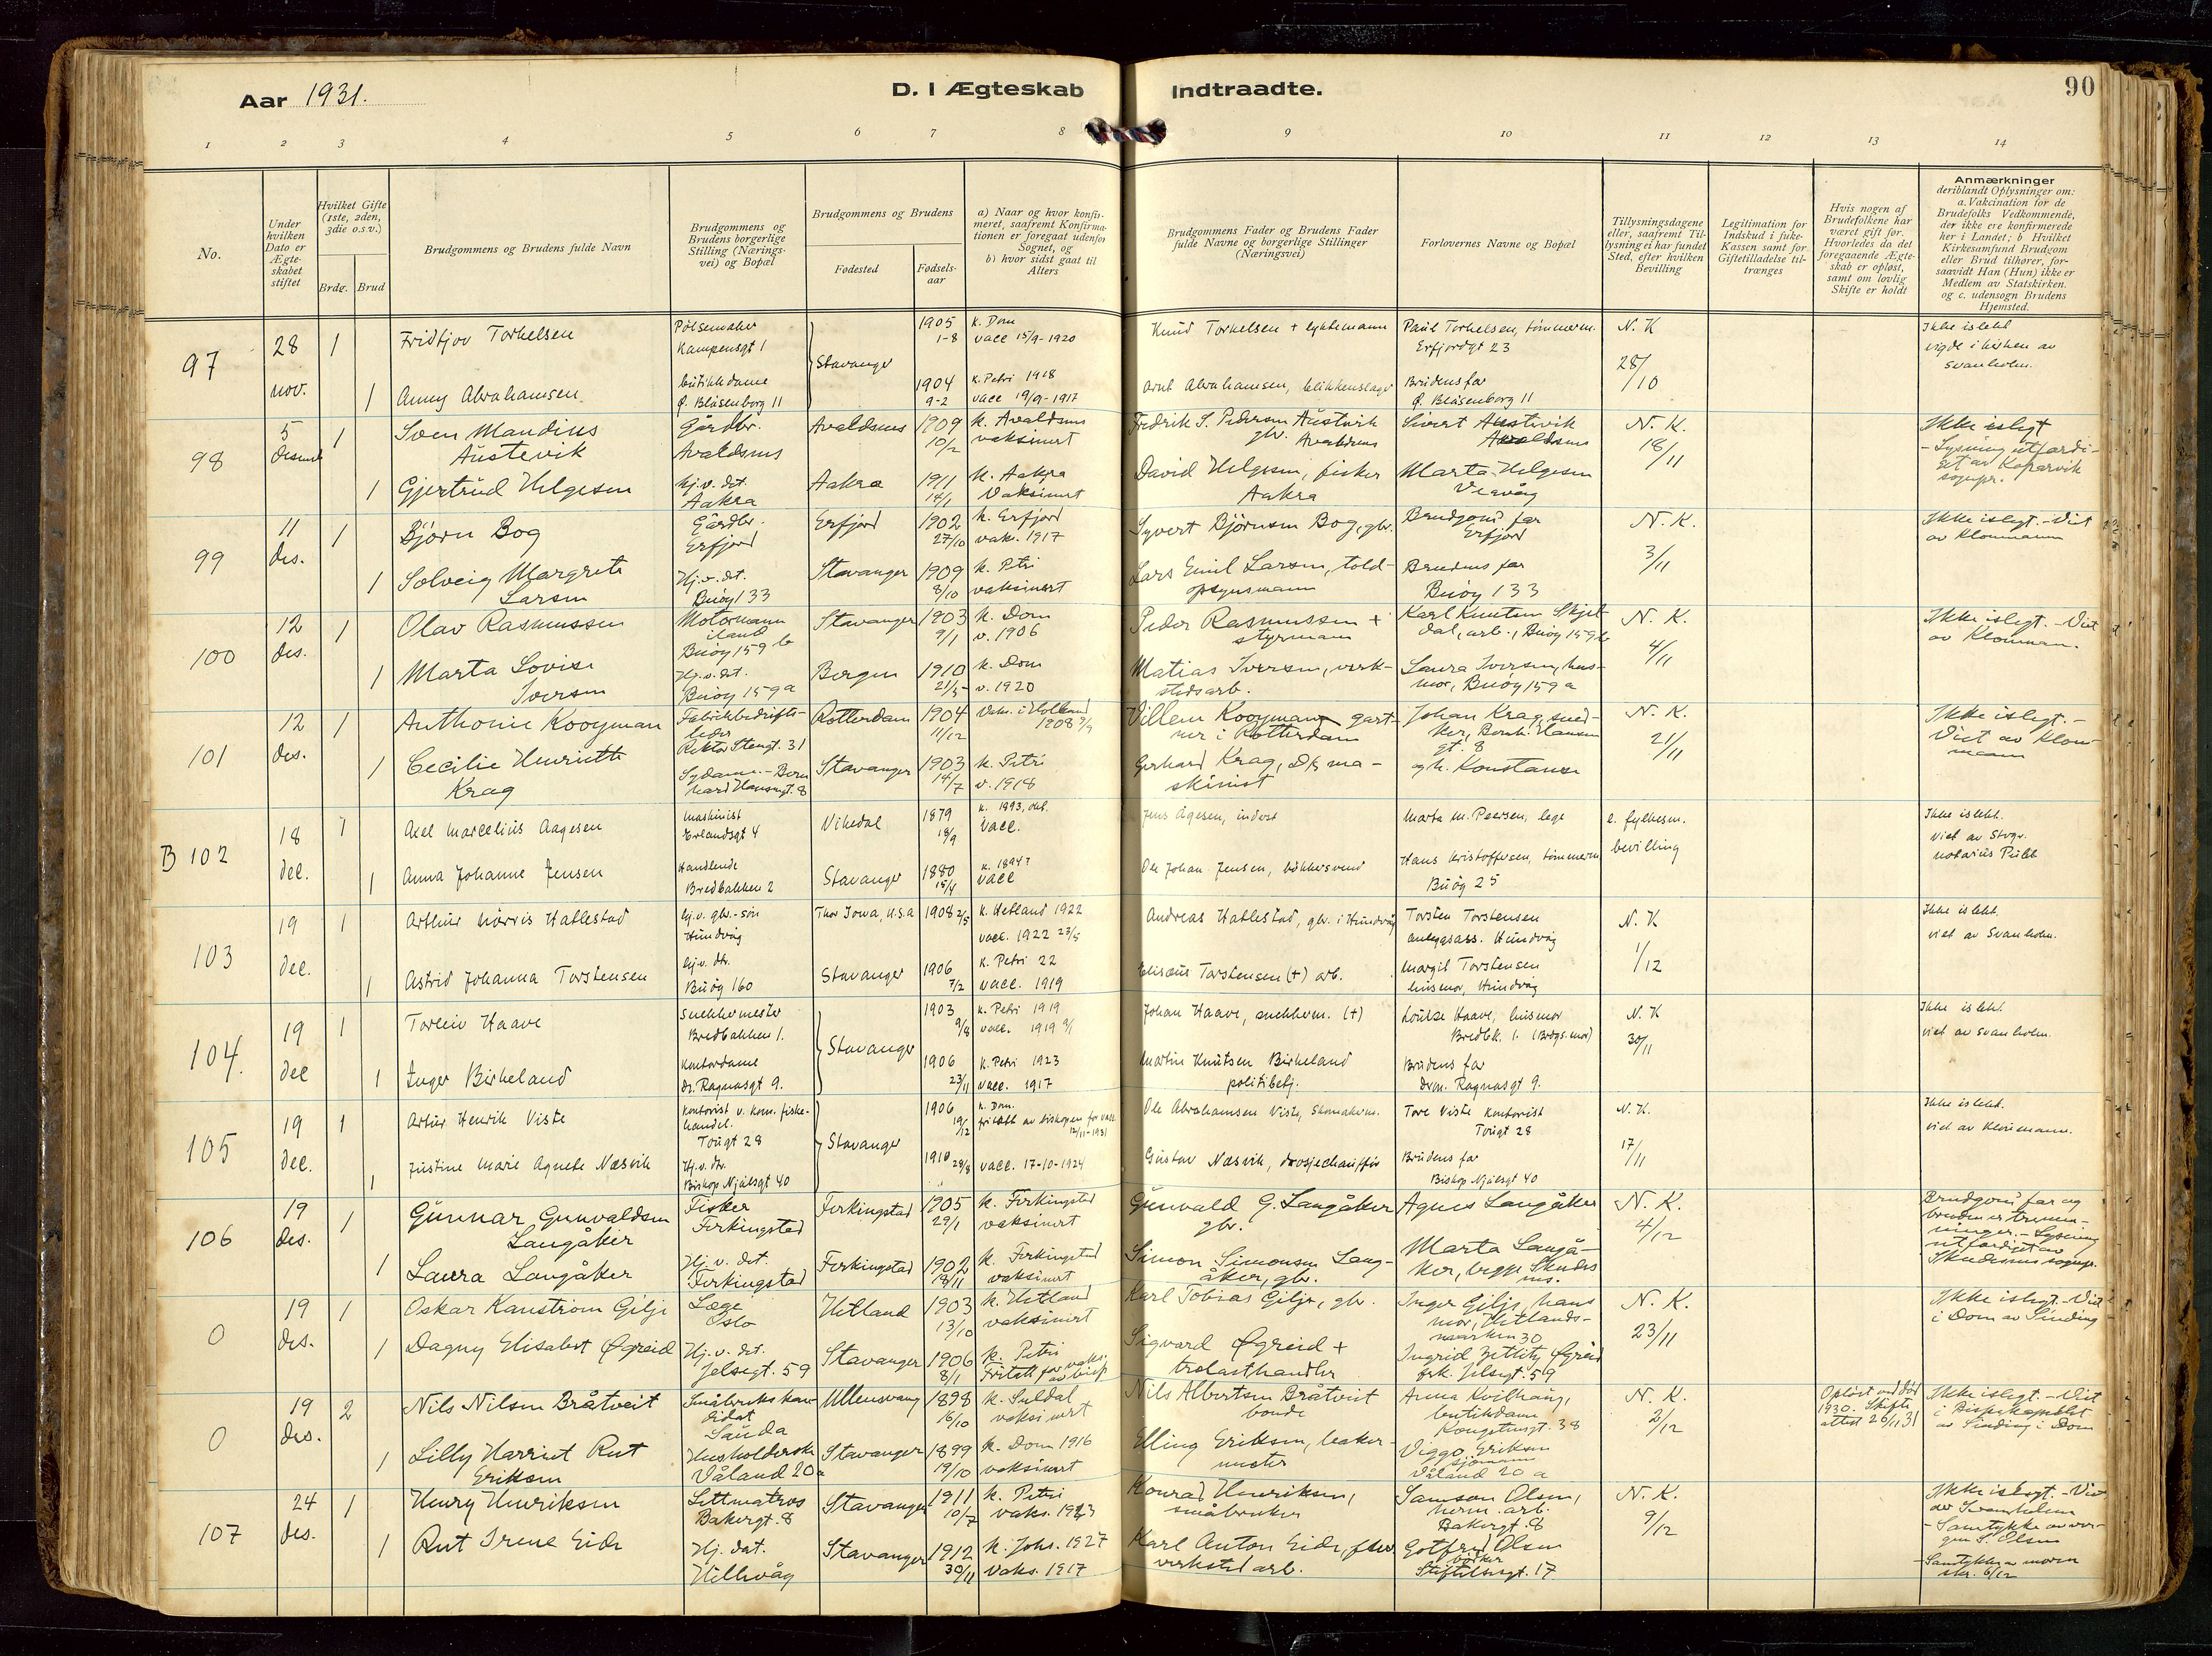 Aar 1931.
D. I Ægteskab Indtraadte.
90
1 2 3 4 5 6 7 8 9 10 11 12 13 14
No.
Under hvilken Dato er Ægteskabet stiftet
Hvilket Gifte (1ste, 2den, 3die o.s.v.)
Brdg. Brud
Brudgommens og Brudens fulde Navn
Brudgommens og Brudens borgerlige Stilling (Næringsvei) og Bopæl
Brudgommens og Brudens
Fødested
Fødselsaar
a) Naar og hvor konfirmeret, saafremt Konfirmationen er foregaat udenfor Sognet, og
b) hvor sidst gaat til Alters
Brudgommens Fader og Brudens Fader fulde Navne og borgerlige Stillinger (Næringsvei)
Forlovernes Navne og Bopæl
Tillysningsdagene eller, saafremt Tillysning ei har fundet Sted, efter hvilken Bevilling
Legitimation for Indskud i Enke-Kassen samt for Giftetilladelse tiltrænges
Hvis nogen af Brudefolkene har været gift før. Hvorledes da det foregaaende Ægteskab er opløst, samt om lovlig Skifte er holdt
Anmærkninger
deriblandt Oplysninger om: a. Vakcination for de Brudefolks Vedkommende, der ikke ere konfirmerede her i Landet; b Hvilket Kirkesamfund Brudgom eller Brud tilhører, forsaavidt Han (Hun) ikke er Medlem av Statskirken. og c. udensogn Brudens Hjemsted.
97 28 nov. 1 Fridtjov Torkelsen Pølsemaker Kampensgt 1 Stavanger 1905 1-8 k. Dom vacc 15/9-1920 Knud Torkelsen + lyktemann Paul Torkelsen, tømmerm. Erfjordgt 23 N. K 28/10 Ikke islekt vigde i kirken av Svanholm.
1 Anny Abrahamsen butikkdame Ø. Blåsenborg 11 1904 9-2 k. Petri 1918 vacc 19/9-1917 Arnt Abrahamsen, blikkenslager Brudens far Ø. Blåsenborg 11
98 5 desemb 1 Sven Mandius Austevik Gårdbr. Avaldsnes Avaldsnes 1909 10/2 k. Avaldsnes vaksinert Fredrik S. Pedersen Austevik gbr. Avaldsnes Sivert Austevik Avaldsnes N. K. 18/11 Ikke islegt - Lysning utfærdiget av Kopervik sognepr.
1 Gjertrud Helgesen hj. v. det. Aakra Aakra 1911 14/1 k. Aakra Vaksinert David Helgesen, fisker Aakra Marta Helgesen Veavåg
99 11 des. 1 Bjørn Bog Gårdbr. Erfjord Erfjord 1902 27/10 k. Erfjord vak. 1917 Syvert Bjørnsen Bog, gbr. Brudgoms far Erfjord N. K. 3/11 Ikke islegt. - Viet av Kloumann
1 Solveig Margrete Larsen Hj. v. det. Buøy 133 Stavanger 1909 8/10 k. Petri vaksinert Lars Emil Larsen, toldopsynsmann Brudens far Buøy 133
100 12 des. 1 Olav Rasmussen Motormann iland Buøy 159 b Stavanger 1903 9/1 k. Dom v. 1906 Peder Rasmussen + styrmann Karl Knutsen Skjeldal, arb., Buøy 159 b N. K. 4/11 Ikke islegt. - Viet av Klouman.
1 Marta Lovise Iversen Hj. v. det. Buøy 159 a Bergen 1910 21/5 k. Dom v. 1920 Matias Iversen, verkstedsarb. Laura Iversen, husmor, Buøy 159 a
101 12 des. 1 Anthonie Kooyman Fabrikbedriftsleder Rektor Stengt. 31 Rotterdam 1904 11/12 Vaks. i Holland 1908 Villem Kooyman gartner i Rotterdam Johan Krag, snedker, Bernh. Hansens gt. 8 N. K. 21/11 Ikke islegt. - Viet av Kloumann
1 Cecilie Henriette Krag Sydame. - Bernhard Hansensgt. 8 Stavanger 1903 14/7 k. Petri v. 1918 Gerhard Krag, D/S maskinist og h. Konstanse
B 102 18 dec. 1 Axel Marcelius Aagesen maskinist Erlandsgt 4 Vikedal 1879 18/9 k. 1893, okt. vacc. Jens Ågesen, inderst Marta M. Peersen, lege e. fylkesm. bevilling Ikke islekt. viet av Stvgr. notarius Publ
1 Anna Johanne Jensen Handlende Bredbakken 2 Stavanger 1880 15/4 k. 1894? vacc Ole Johan Jensen, bøkkersvend Hans Kristoffersen, tømmerm Buøg 25
103 19 dec. 1 Arthur Norris Hatlestad hj. v. gbr. - søn Hundvåg Thor Iowa, U.S.A 1908 2/5 k. Hetland 1922 vacc. 1922 23/5 Andreas Hatlestad, gbr. i Hundvåg Torsten Torstensen anleggsass. Hundvåg N. K 1/12 Ikke islekt. viet av Svanholm.
1 Astrid Johanna Torstensen hj. v. dtr. Buøg 160 Stavanger 1906 7/2 k. Petri 22 vacc. 1919 Elisæus Torstensen (+) arb. Margit Torstensen husmor, Hundvåg
104. 19 dec 1 Torleiv Haave Snekkermester Bredbakken 1. Stavanger 1903 9/8 k. Petri 1919 vacc. 1919 Johan Haave, snekkerm. (+) Louise Haave, husmor Bredbk. 1. (Brdgs. mor) N. K 30/11 Ikke islekt. viet av Svanholm.
1 Inger Birkeland Kontordame Dr. Ragnasgt 9. 1906 23/11 k. Petri 1923 vacc. 1917 Martin Knutsen Birkeland politibetj. Brudens far Dron. Ragnasgt 9.
105 19 dec. 1 Artur Henrik Viste Kontorist v. kom. fiskehandel. Tougt 28 Stavanger 1906 19/12 k. Dom. fritatt av biskopen for vacc 12/11-1931 Ole Abrahamsen Viste, Skomakerm. Tore Viste Kontorist Tougt 28 N. K. 17/11 Ikke islekt. viet av Kloumann.
1 Justine Marie Agnete Næsvik Hj. v. dtr. Biskop Njålsgt 40 1910 28/8 vacc. 17-10-1924 Gustav Næsvik, drosjechauffør Brudens far Biskop Njålsgt 40
106 19 des. 1 Gunnar Gunvaldsen Langåker Fisker Ferkingstad Ferkingstad 1905 29/1 k. Ferkingstad vaksinert Gunvald G. Langåker gbr. Agnes Langåker N. K. 4/12 Brudgoms far og bruden er tremenninger. - Lysning utfærdiget av Skudesnes sognepr.
1 Laura Langåker Hj. v. det. Ferkingstad Ferkingstad 1902 18/11 k. Ferkingstad vaksinert Simon Simonsen Langåker, gbr. Marta Langåker, begge Skudesnes.
0 19 des. 1 Oskar Kanstrom Gilje Læge Oslo Hetland 1903 13/10 k. Hetland vaksinert Karl Tobias Gilje, gbr. Inger Gilje, hans mor, Hetlandsmarken 30 N. K. 23/11 Ikke islegt. - Viet i Dom av Sinding
1 Dagny Elisabet Øgreid Hj. v. det. Jelsegt. 59 Stavanger 1906 8/1 k. Petri Fritatt for vaks. av bisp Sigvard Øgreid + trelasthandler Ingrid Zetlitz Øgreid frk. Jelsegt. 59
0 19 des. 2 Nils Nilsen Bråtveit Småbrukskandidat Sauda Ullensvang 1898 16/10 k. Suldal vaksinert Nils Albertsen Bråtveit bonde Anna Kvilhaug, butikdame Kongstensgt. 38 N. K. 2/12 Opløst ved død 1930. Skifte attest 26/11 31 Ikke islegt. - Viet i Bispekapellet av Sinding i Dom
1 Lilly Harriet Rut Eriksen Husholderske Våland 20a Stavanger 1899 19/10 k. Dom 1916 vaksinert Elling Eriksen, bakermester Viggo Eriksen sjømann Våland 20 a
107 24 des. 1 Henry Henriksen Lettmatros Bakergt. 8 Stavanger 1911 10/7 k. Petri vaks. 1923 Konrad Henriksen, småbruker Samson Olsen, herm. arb. Bakergt. 8 N. K. 9/12 Ikke islegt. - Viet av Svanholm - Samtykke av vergen S. Olsen - Samtykke av moren skr. 6/12
1 Rut Irene Eide Hj. dat. Hillevåg Stavanger 1912 30/11 k. Johs. 1927 Vaks. 1917 Karl Anton Eide, verksted arb. Gotfred Olsen bøkker Stiftelsesgt. 17